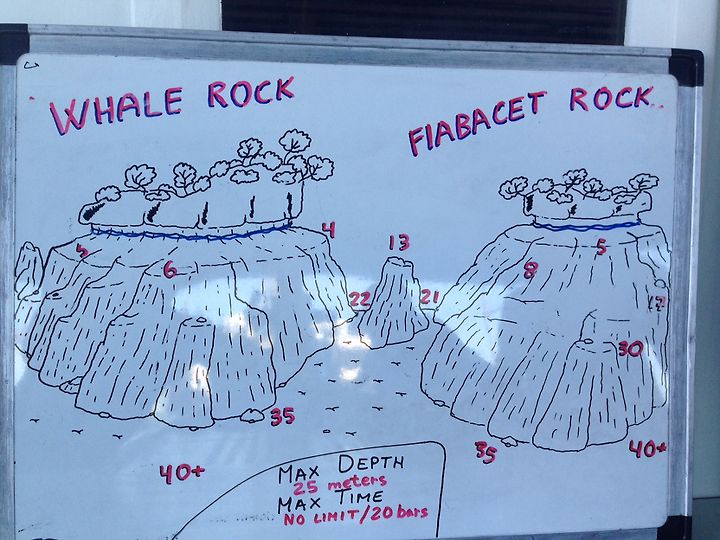 WHALE ROCK
FIABACET ROCK
4
5
6
13
5
8
22
21
30
35
35
40+
40+
MAX DEPTH
25 meters
MAX TIME
NO LIMIT/20 bars